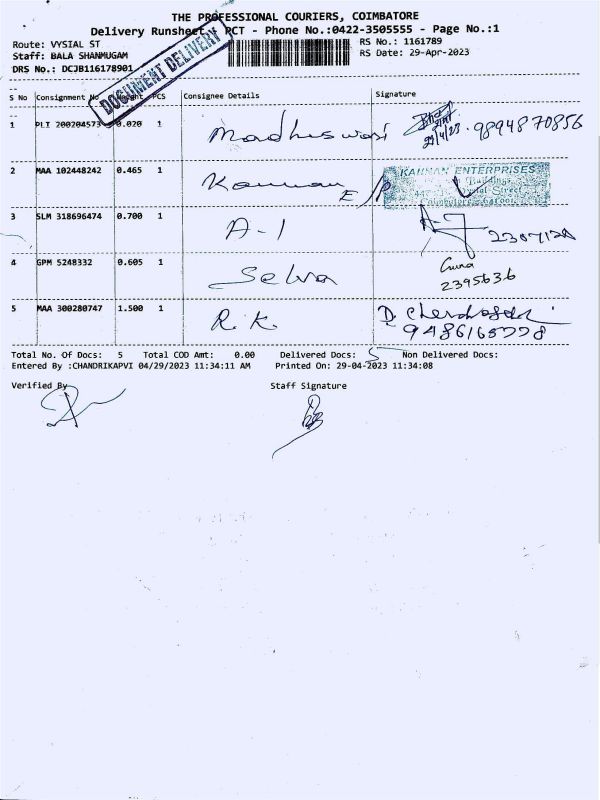 THE PROFESSIONAL COURIERS, COIMBATORE
Delivery Runsheet PCT - Phone No.:0422-3505555 - Page No.:1
Route: VYSIAL ST
RS No.: 1161789
Staff: BALA SHANMUGAM
RS Date: 29-Apr-2023
DRS No.: DCJB116178901
DOCUMENT DELIVERY
S No Consignment No Weight PCS Consignee Details Signature
1 PLI 200204573 0.020 1 29/4/23 9894870856
2 MAA 102448242 0.465 1 Kannan E/P
KANNAN ENTERPRISES
Buildings,
Street
3 SLM 318696474 0.700 1 A-1
4 GPM 5248332 0.605 1 Selva Guna
2395636
5 MAA 300280747 1.500 1 R.K.
Total No. Of Docs: 5 Total COD Amt: 0.00 Delivered Docs: 5 Non Delivered Docs:
Entered By :CHANDRIKAPVI 04/29/2023 11:34:11 AM Printed On: 29-04-2023 11:34:08
Verified By Staff Signature